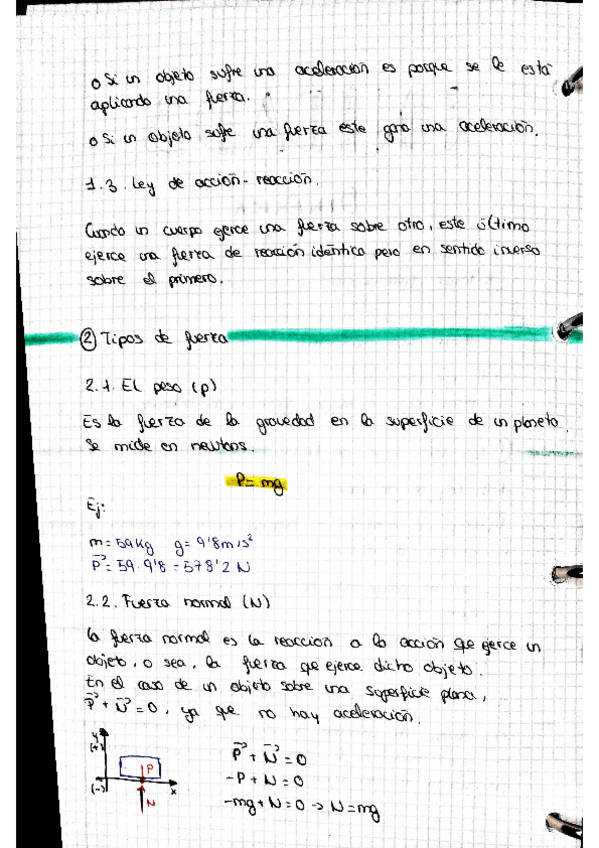 o Si un objeto sufre una aceleración es porque se le está
aplicando una fuerza.
o Si un objeto sufre una fuerza este gana una aceleración.
1.3. Ley de acción-reacción.
Cuando un cuerpo ejerce una fuerza sobre otro, este último
ejerce una fuerza de reacción idéntica pero en sentido inverso
sobre el primero.
② Tipos de fuerza
2.1. El peso (p)
Es la fuerza de la gravedad en la superficie de un planeta.
Se mide en newtons.
P= mg
Ej:
m = 59 Kg g = 9'8 m/s²
P⃗ = 59 · 9'8 = 578'2 N
2.2. Fuerza normal (N)
La fuerza normal es la reacción a la acción que ejerce un
objeto, o sea, la fuerza que ejerce dicho objeto.
En el caso de un objeto sobre una superficie plana,
P⃗ + N⃗ = 0, ya que no hay aceleración.
y
(+)
P
(-)
x
N
P⃗ + N⃗ = 0
-P + N = 0
-mg + N = 0 → N = mg